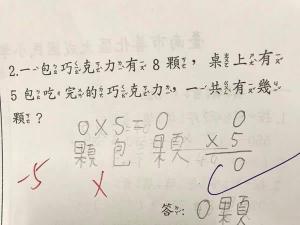 2.一包巧克力有8顆，桌上有
5包吃完的巧克力，一共有幾
顆？
0×5=0
顆 包 顆
0
× 5
0
-5
×
答：0顆